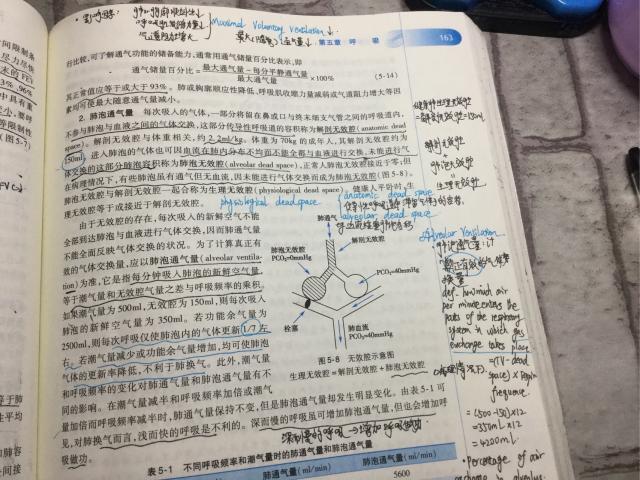 Maximal Voluntary Ventilation↓
第五章 呼 吸
163
行比较,可了解通气功能的储备能力,通常用通气储量百分比表示,即
通气储量百分比= 最大通气量-每分平静通气量
最大通气量
×100%
(5-14)
其正常值应等于或大于93%。肺或胸廓顺应性降低、呼吸肌收缩力量减弱或气道阻力增大等因
素均可使最大随意通气量减小。
2. 肺泡通气量 每次吸入的气体,一部分将留在鼻或口与终末细支气管之间的呼吸道内,
不参与肺泡与血液之间的气体交换,这部分传导性呼吸道的容积称为解剖无效腔(anatomic dead
space)。解剖无效腔与体重相关,约2.2ml/kg。体重为70kg的成年人,其解剖无效腔约为
150ml。进入肺泡的气体也可因血流在肺内分布不均而不能全都与血液进行交换,未能进行气
体交换的这部分肺泡容积称为肺泡无效腔(alveolar dead space),正常人肺泡无效腔接近于零,但
在病理情况下,有些肺泡虽有通气但无血流,因未能进行气体交换而成为肺泡无效腔(图5-8)。
肺泡无效腔与解剖无效腔一起合称为生理无效腔(physiological dead space)。健康人平卧时,生
理无效腔等于或接近于解剖无效腔。
physiological dead space
anatomic dead space
alveolar dead space
由于无效腔的存在,每次吸入的新鲜空气不能
全部到达肺泡与血液进行气体交换,因而肺通气量
不能全面反映气体交换的状况。为了计算真正有
效的气体交换量,应以肺泡通气量(alveolar ventila-
tion)为准,它是指每分钟吸入肺泡的新鲜空气量,
等于潮气量和无效腔气量之差与呼吸频率的乘积。
如果潮气量为500ml,无效腔为150ml,则每次吸入
肺泡的新鲜空气量为350ml。若功能余气量为
2500ml,则每次呼吸仅使肺泡内的气体更新1/7左
右。若潮气量减少或功能余气量增加,均可使肺泡
气体的更新率降低,不利于肺换气。此外,潮气量
和呼吸频率的变化对肺通气量和肺泡通气量有不
同的影响。在潮气量减半和呼吸频率加倍或潮气
量加倍而呼吸频率减半时,肺通气量保持不变,但是肺泡通气量却发生明显变化。由表5-1可
见,对肺换气而言,浅而快的呼吸是不利的。深而慢的呼吸虽可增加肺泡通气量,但也会增加呼
吸做功。
肺通气
解剖无效腔
肺泡无效腔
PCO₂=0mmHg
PCO₂=40mmHg
栓塞
肺血流
PCO₂=40mmHg
图5-8 无效腔示意图
生理无效腔=解剖无效腔+肺泡无效腔
表5-1 不同呼吸频率和潮气量时的肺通气量和肺泡通气量
肺通气量(ml/min)
肺泡通气量(ml/min)
5600
解剖无效腔
肺泡无效腔
生理无效腔
Alveolar Ventilation
def- how much air
per minute enters the
parts of the respiratory
system in which gas
exchange takes place
=(TV-dead
space)×Respir
frequence
=(500-150)×12
=350ml×12
=4200ml
•percentage of air